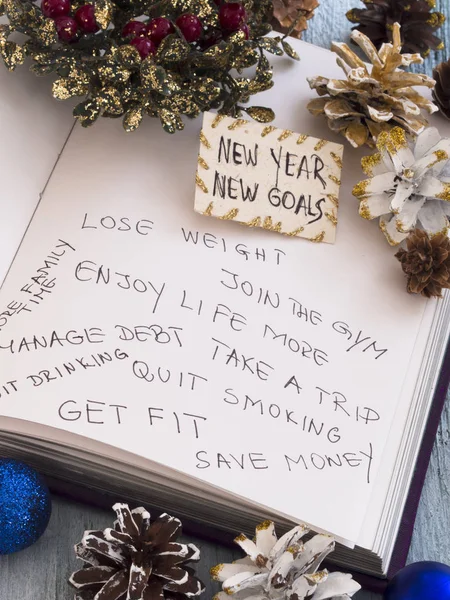 NEW YEAR
NEW GOALS
LOSE WEIGHT
JOIN THE GYM
FAMILY
TIME
ENJOY LIFE MORE
MANAGE DEBT
TAKE A TRIP
DRINKING
QUIT SMOKING
GET FIT
SAVE MONEY